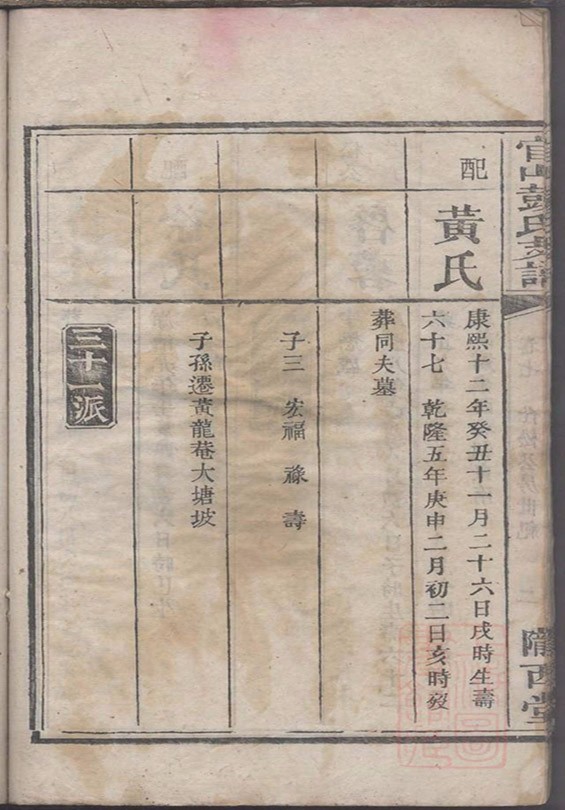 官山彭氏支譜
隴西堂
配
黃氏
康熙十二年癸丑十一月二十六日戌時生壽
六十七 乾隆五年庚申二月初二日亥時歿
葬同夫墓
子三 宏福 祿 壽
子孫遷黃龍菴大塘坡
三十一派